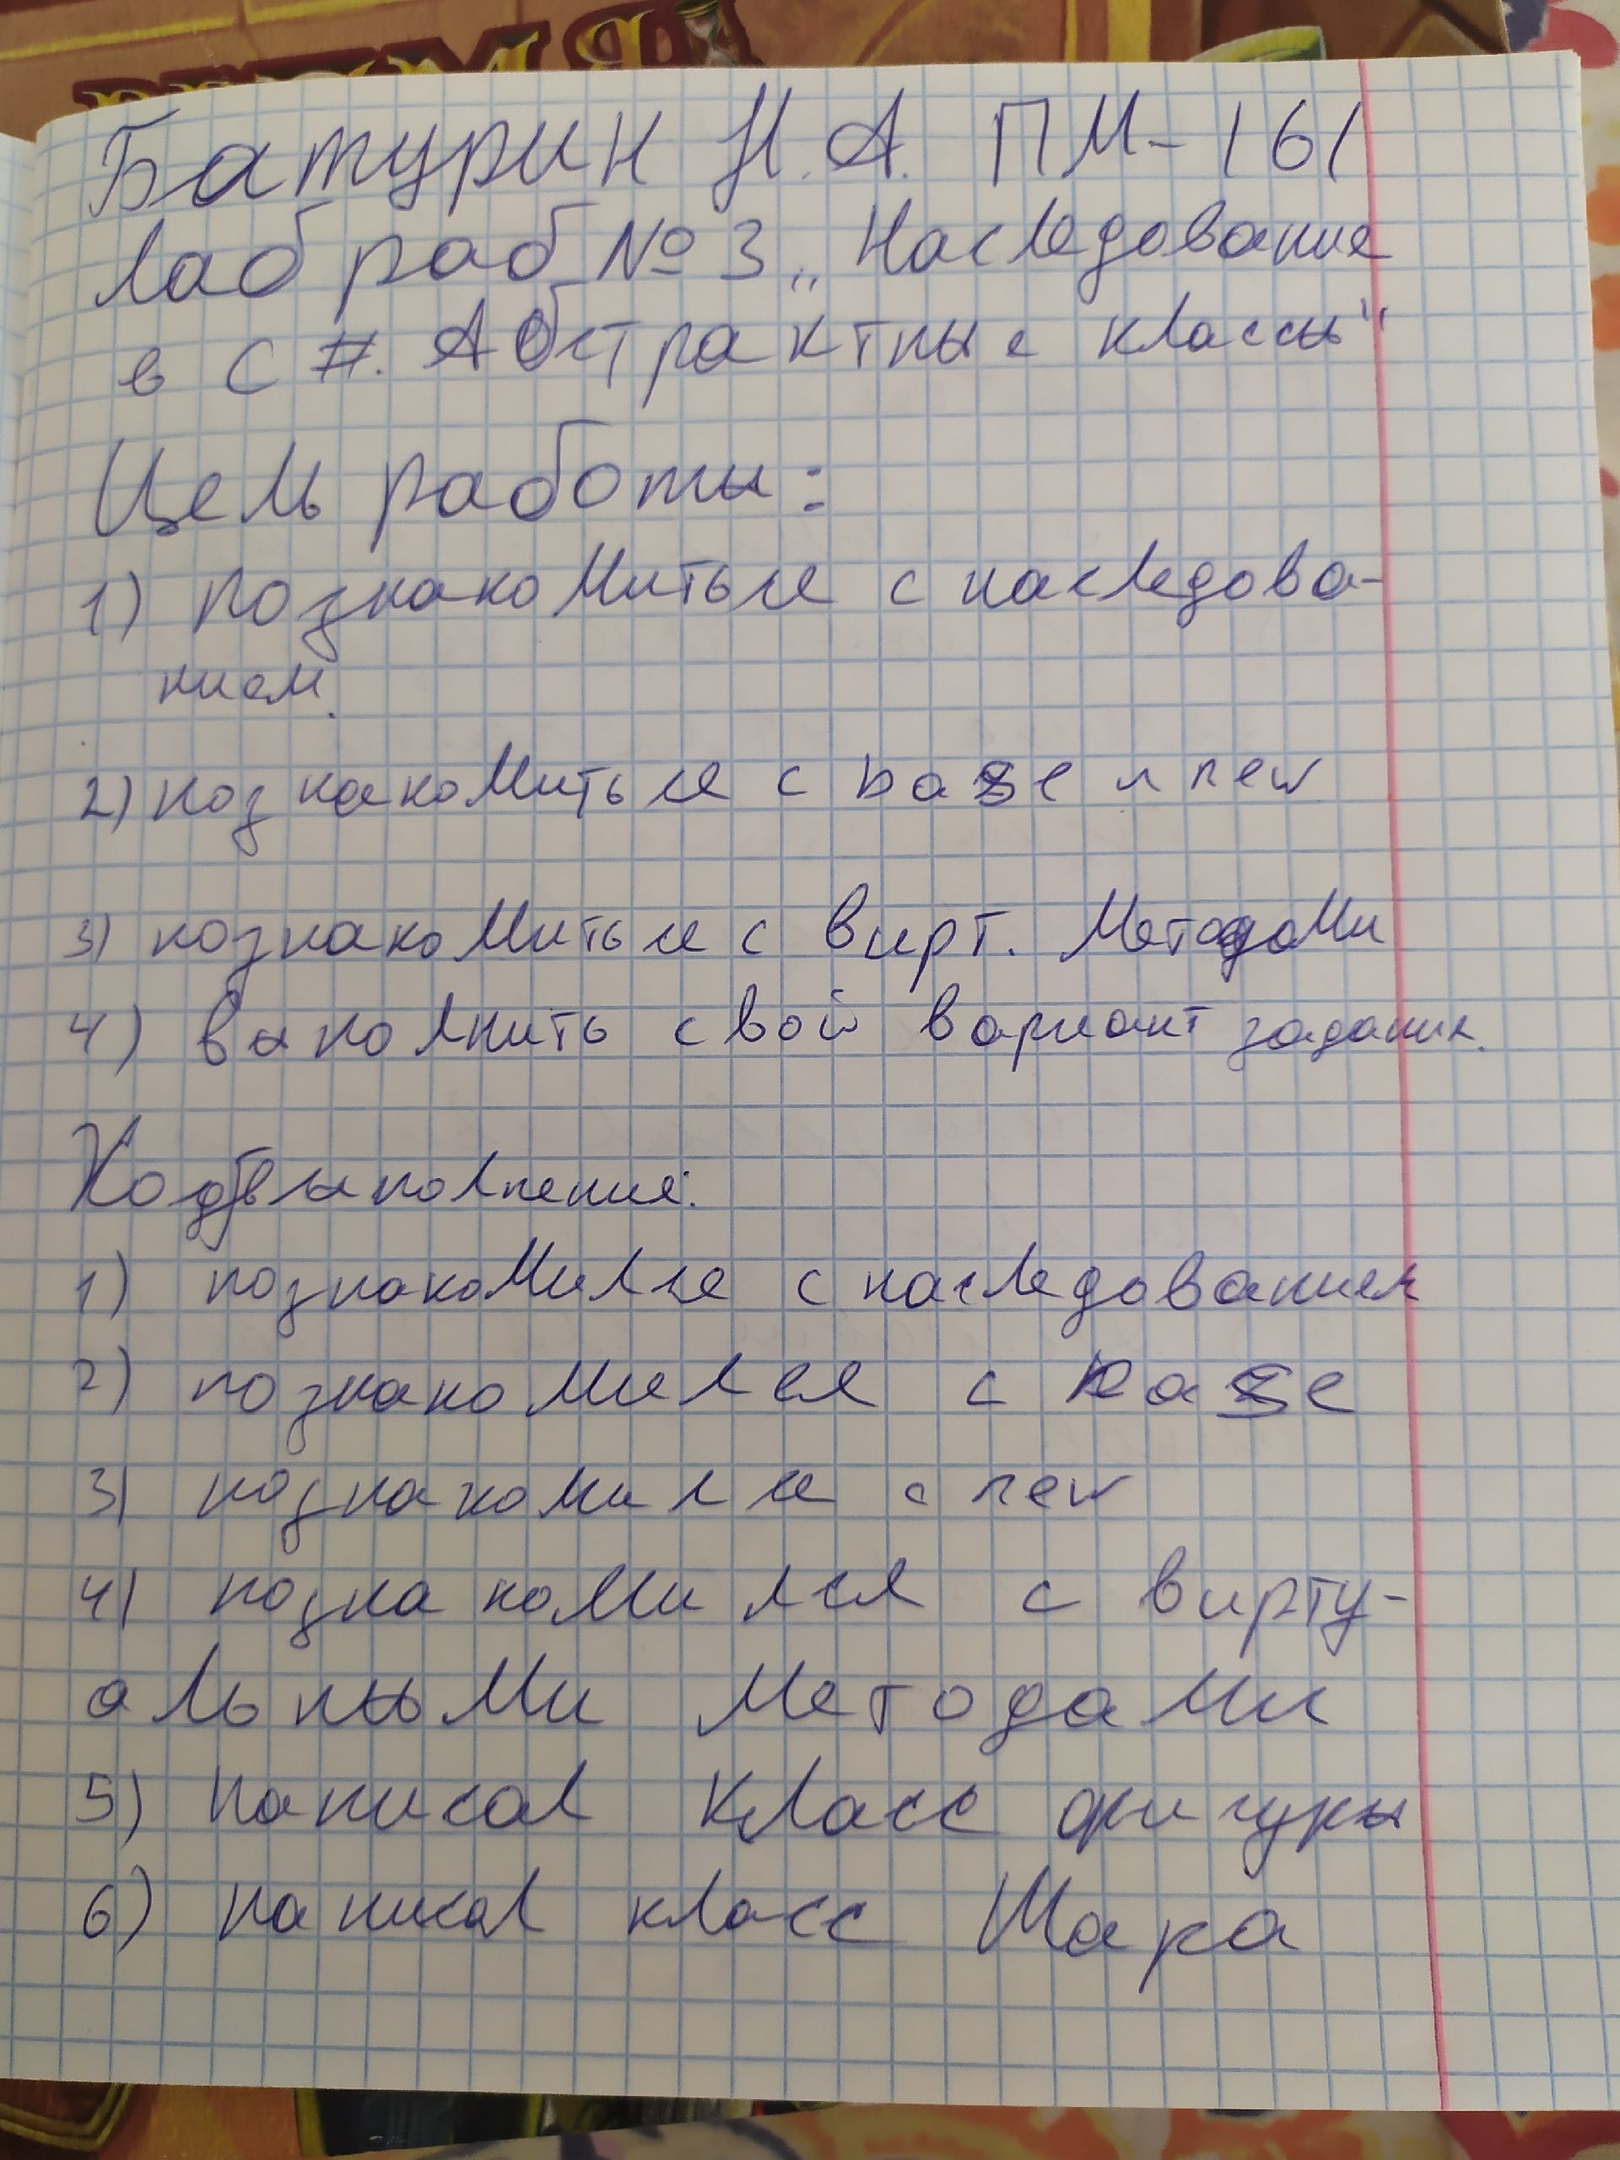 ВРЕМЯ
Батурин Н.А. ПМ-161
Лаб раб №3 „Наследование
в C#. Абстрактные классы"
Цель работы:
1) познакомиться с наследова-
нием.
2) познакомиться с base и new
3) познакомиться с вирт. методами
4) выполнить свой вариант задания.
Ход выполнения:
1) познакомился с наследованием
2) познакомился с base
3) познакомился с new
4) познакомился с вирту-
альными методами
5) написал класс фигуры
6) написал класс Шара